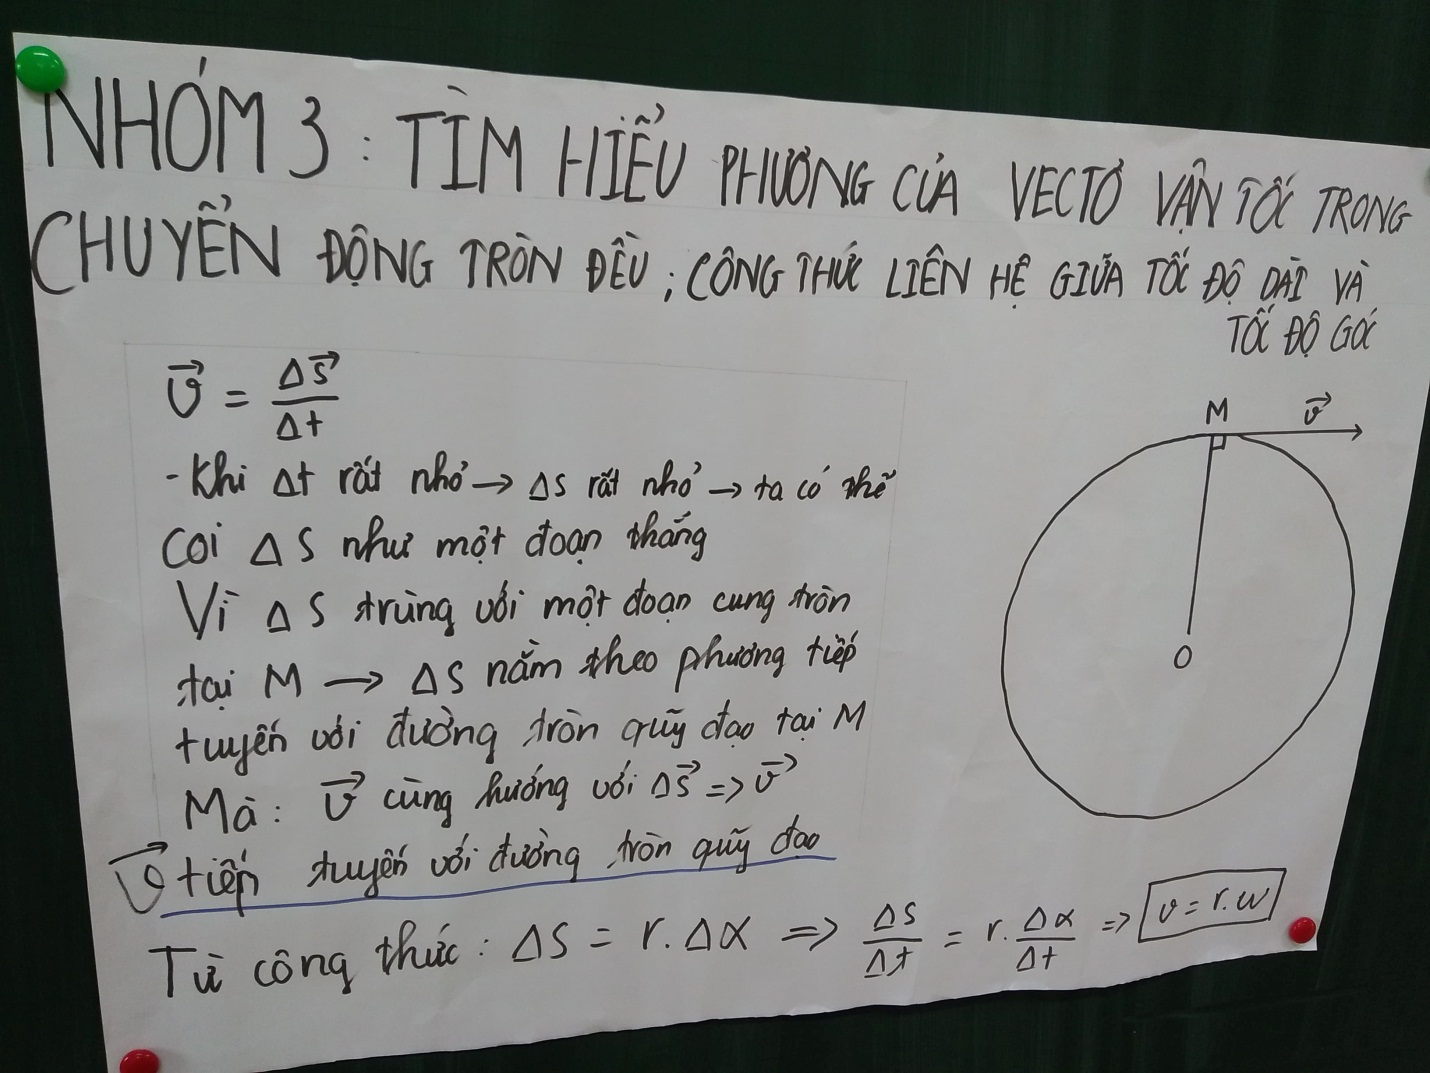 NHÓM 3 : TÌM HIỂU PHƯƠNG CỦA VECTƠ VẬN TỐC TRONG
CHUYỂN ĐỘNG TRÒN ĐỀU ; CÔNG THỨC LIÊN HỆ GIỮA TỐC ĐỘ DÀI VÀ
TỐC ĐỘ GÓC
v⃗ = Δs⃗ / Δt
- Khi Δt rất nhỏ → Δs rất nhỏ → ta có thể
coi Δs như một đoạn thẳng
Vì Δs trùng với một đoạn cung tròn
tại M → Δs nằm theo phương tiếp
tuyến với đường tròn quỹ đạo tại M
Mà : v⃗ cùng hướng với Δs⃗ => v⃗
v⃗ tiếp tuyến với đường tròn quỹ đạo
Từ công thức : Δs = r.Δα => Δs/Δt = r.Δα/Δt => v = r.ω
M v⃗
O